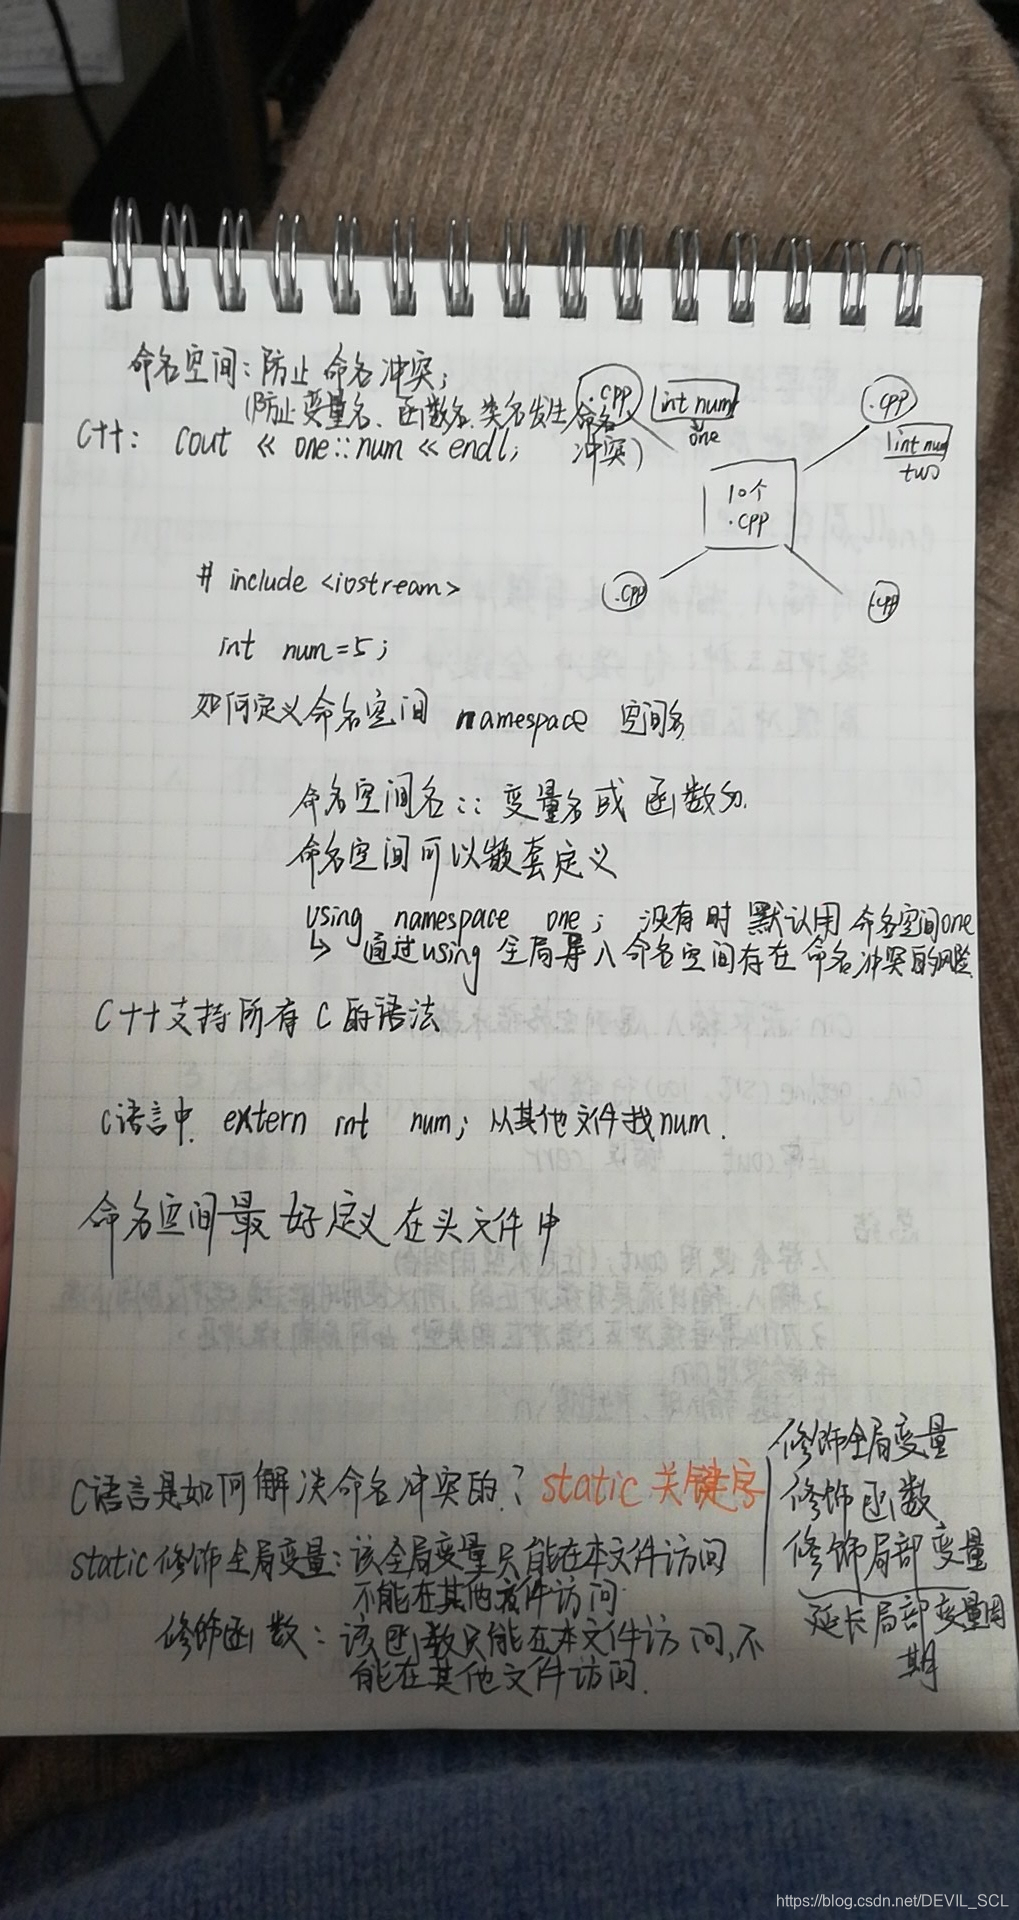 命名空间：防止命名冲突；
(防止变量名、函数名、类名发生命名
冲突)
C++: cout << one::num << endl;
.cpp
int num
one
.cpp
int num
two
10个
.cpp
.cpp
.cpp
# include <iostream>
int num=5;
如何定义命名空间 namespace 空间名
命名空间名:: 变量名或函数名.
命名空间可以嵌套定义
using namespace one; 没有时默认用命名空间one
↳ 通过using全局导入命名空间存在命名冲突的风险
C++支持所有C的语法
C语言中. extern int num; 从其他文件找num.
命名空间最好定义在头文件中
C语言是如何解决命名冲突的？static 关键字
修饰全局变量
修饰函数
修饰局部变量
延长局部变量周
期
static修饰全局变量：该全局变量只能在本文件访问
不能在其他文件访问.
修饰函数：该函数只能在本文件访问,不
能在其他文件访问.
https://blog.csdn.net/DEVIL_SCL